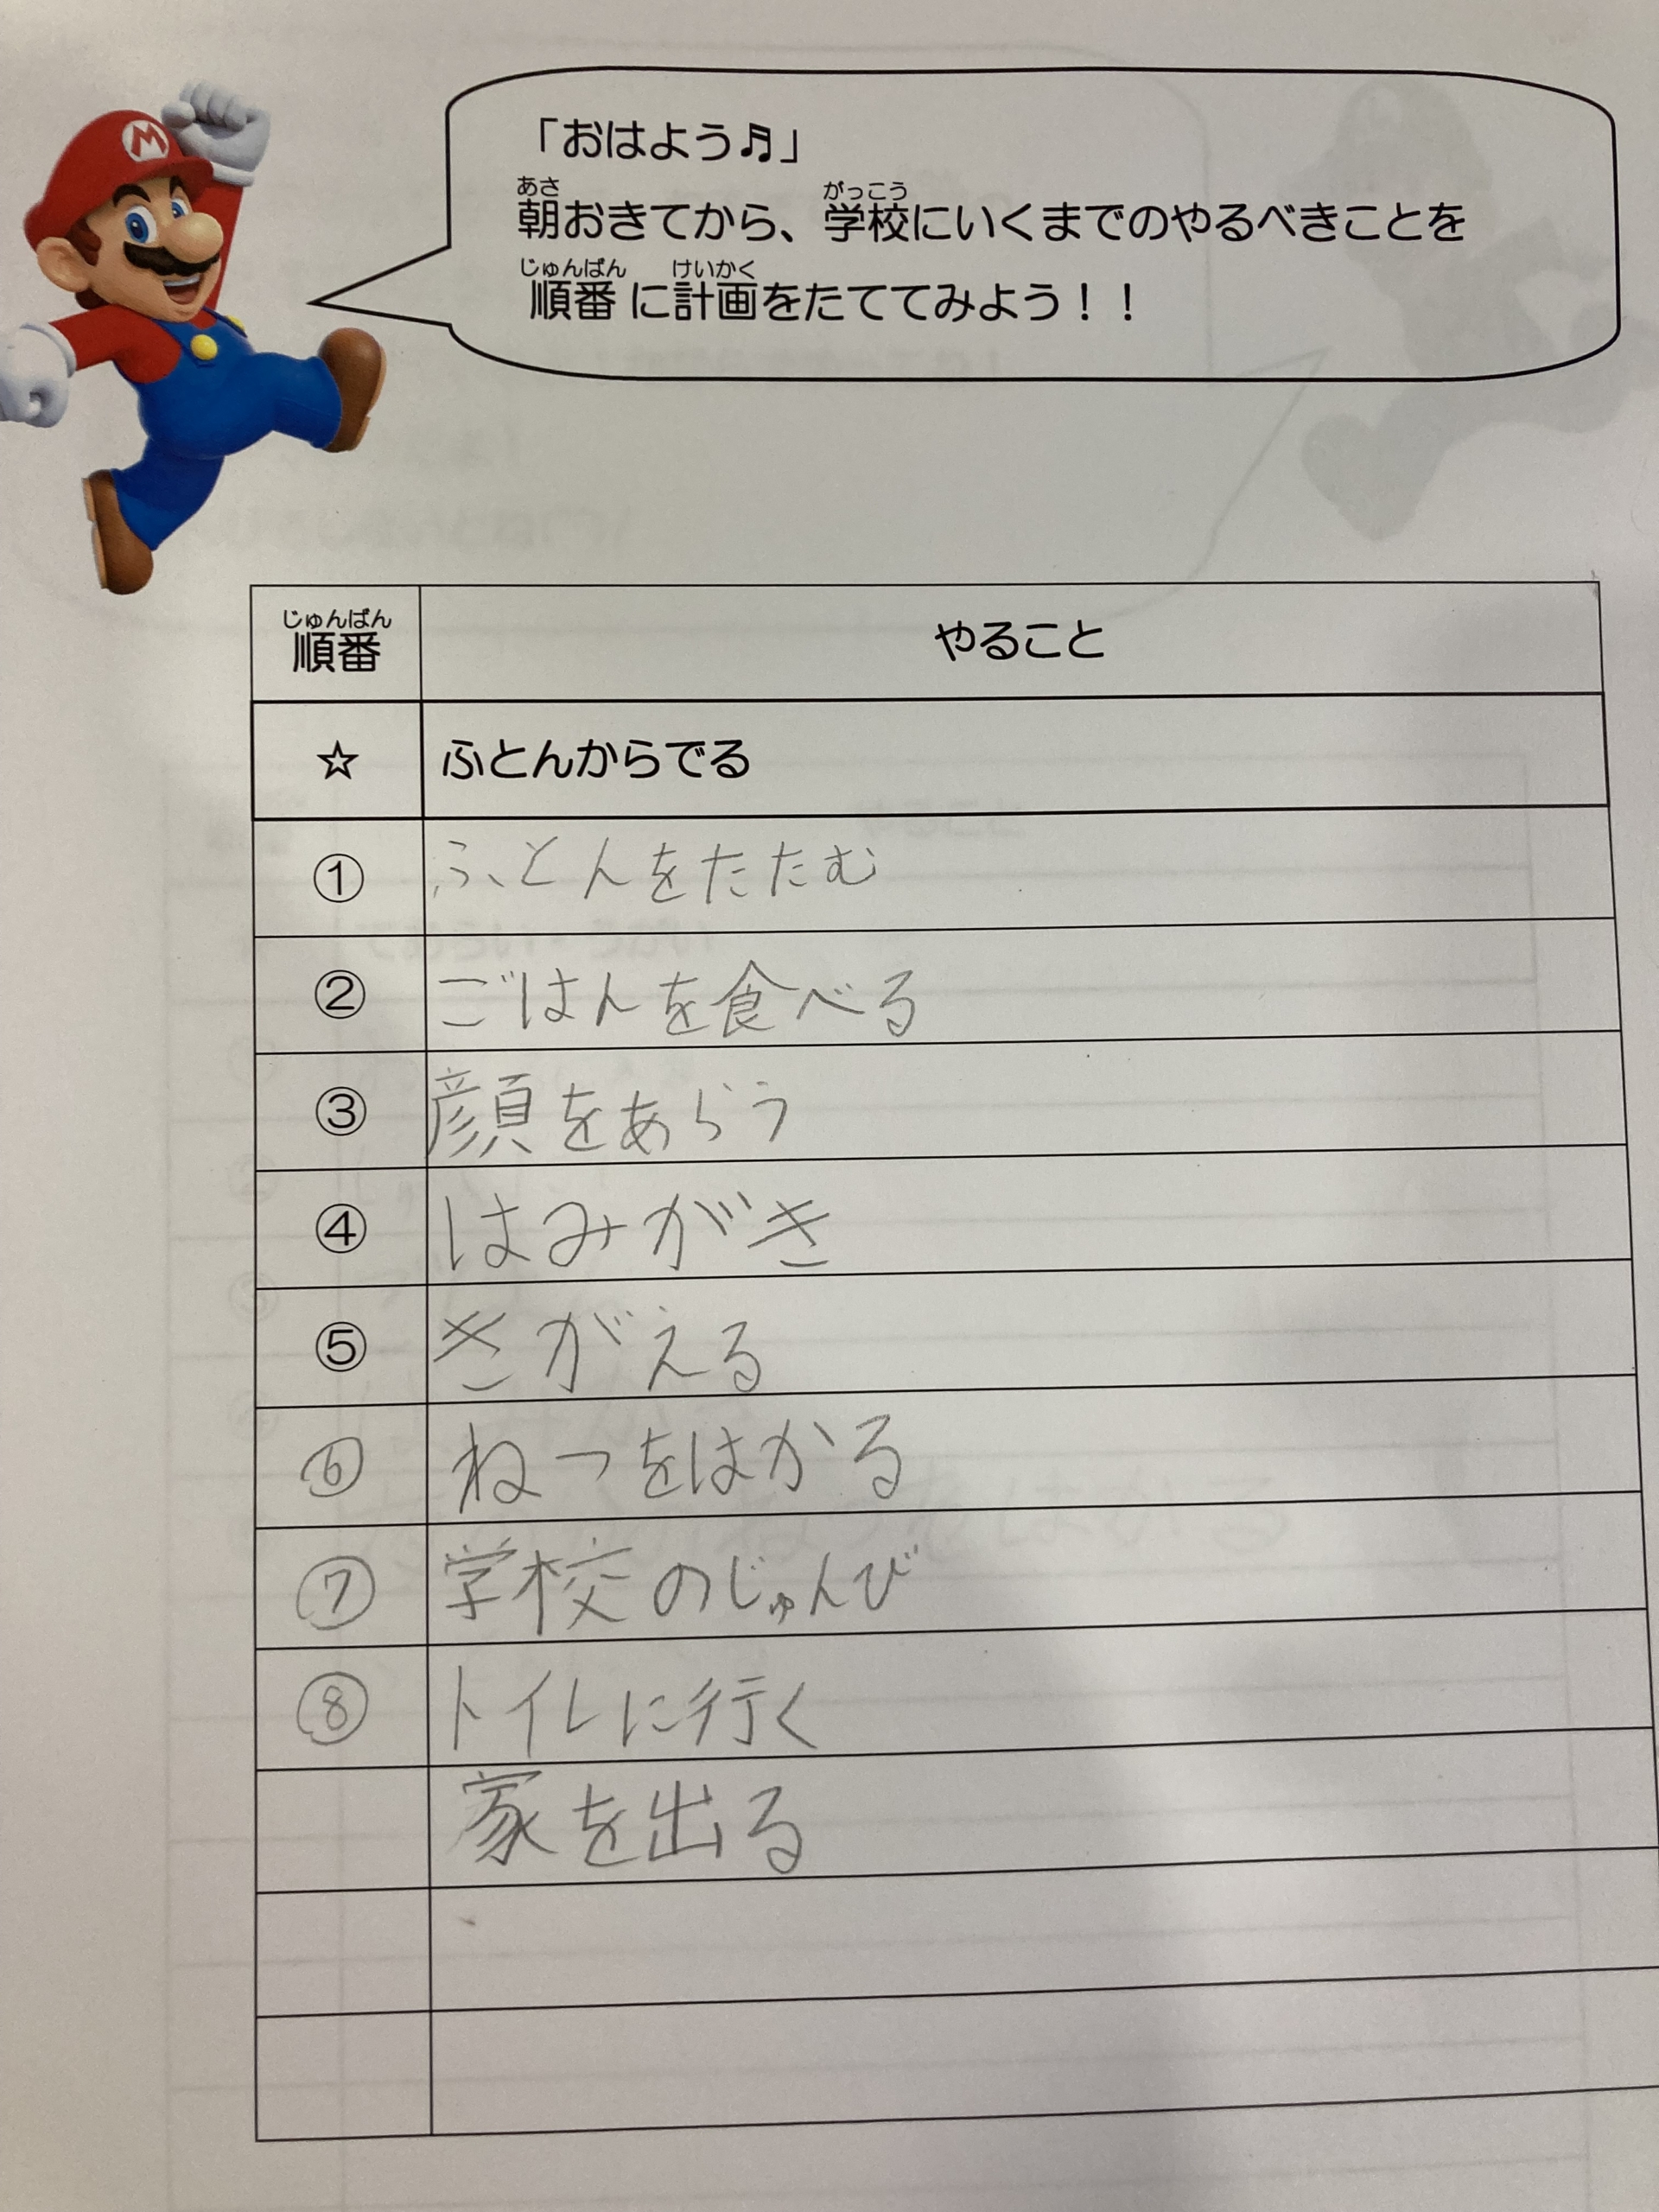 M
「おはよう♬」
朝おきてから、学校にいくまでのやるべきことを
順番に計画をたててみよう！！
順番 やること
☆ ふとんからでる
① ふとんをたたむ
② ごはんを食べる
③ 顔をあらう
④ はみがき
⑤ きがえる
⑥ ねつをはかる
⑦ 学校のじゅんび
⑧ トイレに行く
家を出る